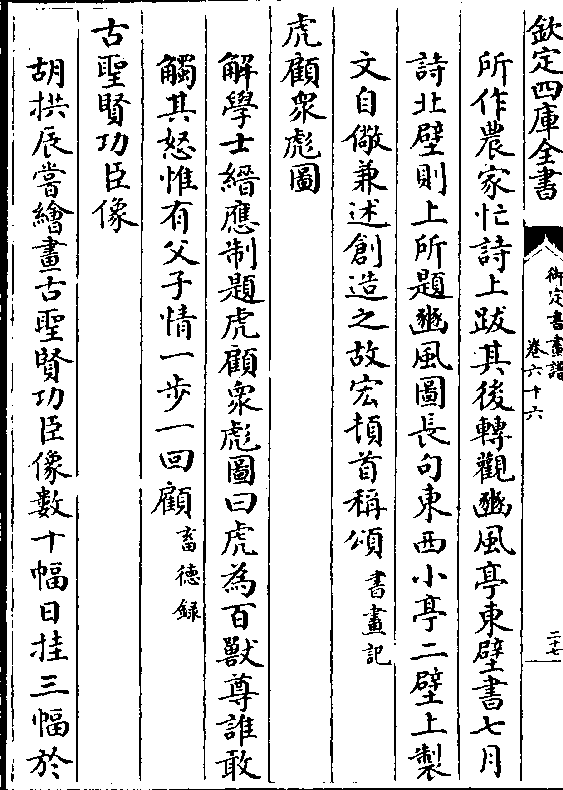 欽定四庫全書
御定書畫譜
卷六十六
二十七
所作農家忙詩上跋其後轉觀豳風亭東壁書七月
詩北壁則上所題豳風圖長句東西小亭二壁上製
文自儆兼述創造之故宏頓首稱頌書畫記
虎顧衆彪圖
解學士縉應制題虎顧衆彪圖曰虎為百獸尊誰敢
觸其怒惟有父子情一步一回顧畜德録
古聖賢功臣像
胡拱辰嘗繪畫古聖賢功臣像數十幅日挂三幅於